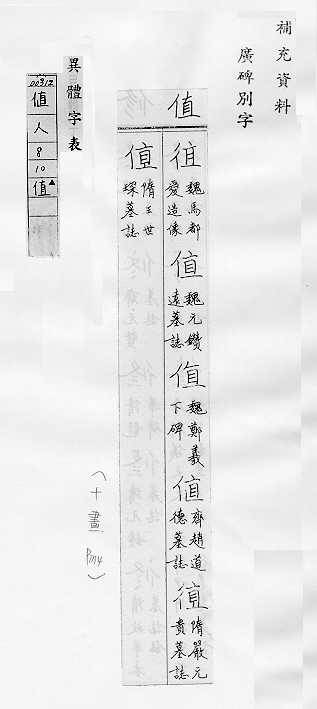 補充資料
廣碑別字
值
徝
魏馬都
愛造像
値
魏元鑽
遠墓誌
值
魏鄭羲
下碑
値
齊趙道
德墓誌
徝
隋嚴元
貴墓誌
值
隋王世
琛墓誌
（十畫 P114）
異體字表
00312
值
人
8
10
値